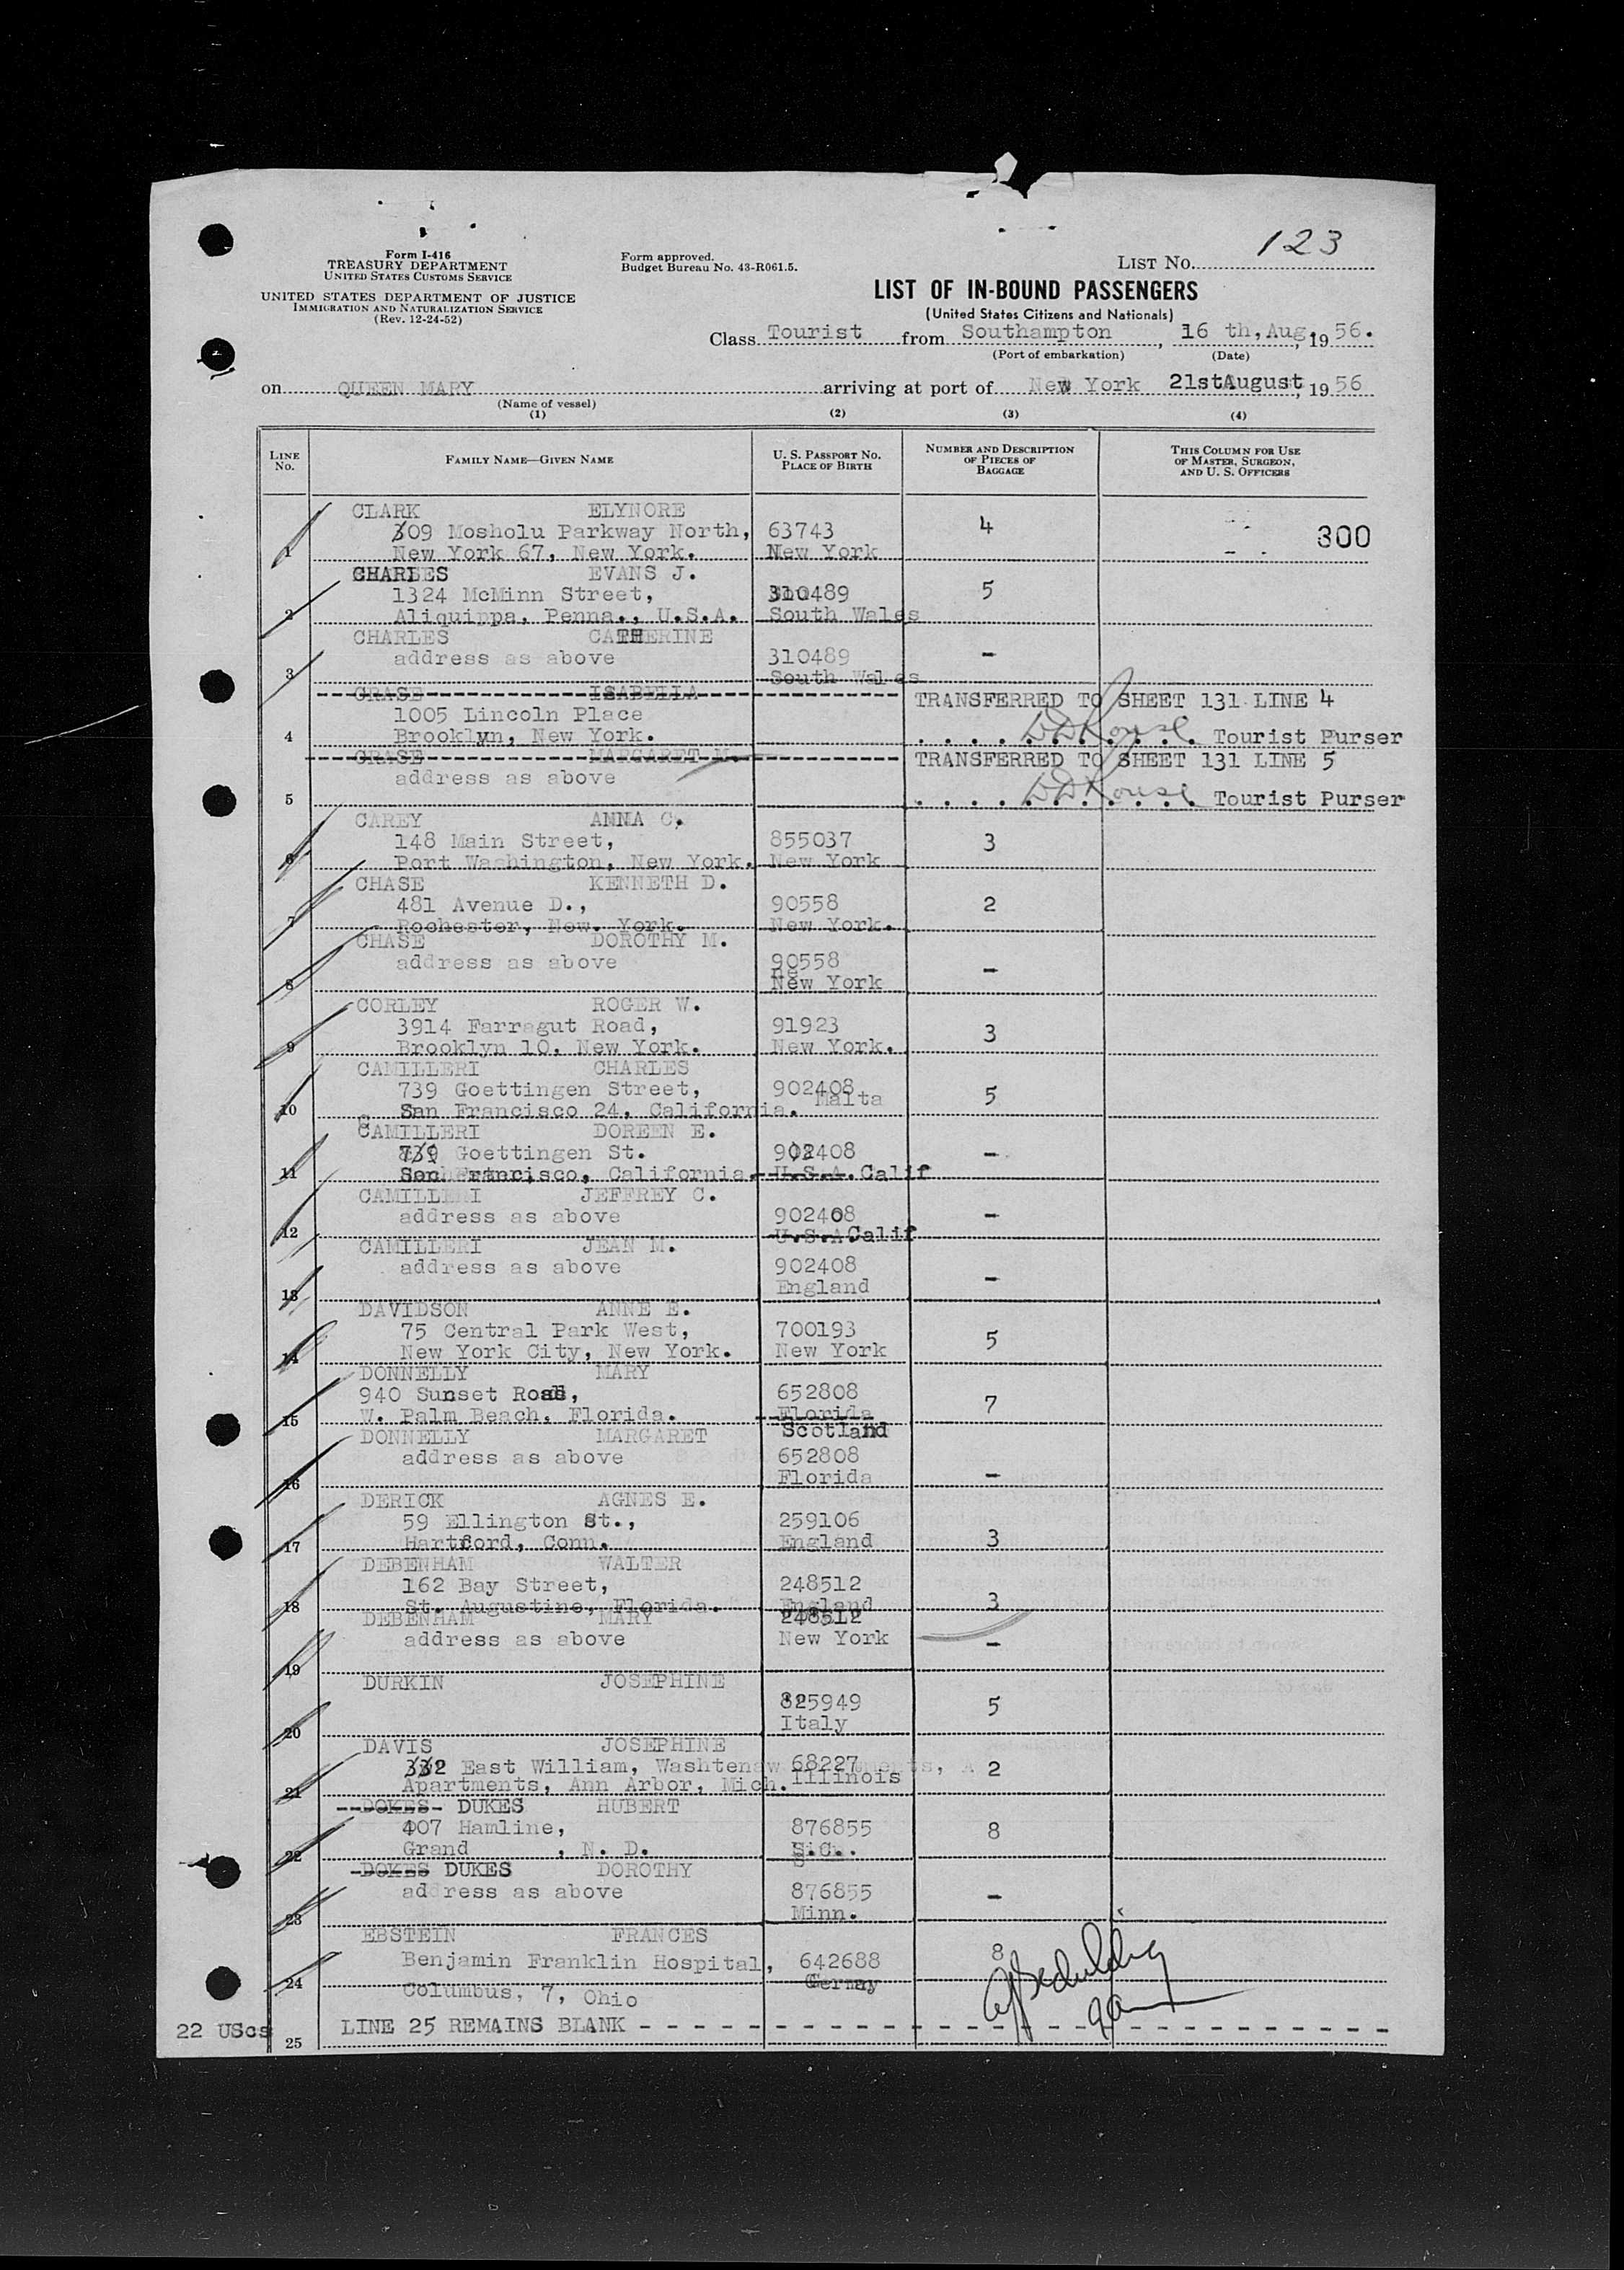 123
Form I-416
TREASURY DEPARTMENT
UNITED STATES CUSTOMS SERVICE
UNITED STATES DEPARTMENT OF JUSTICE
IMMIGRATION AND NATURALIZATION SERVICE
(Rev. 12-24-52)
Form approved.
Budget Bureau No. 43-R061.5.
LIST NO.
LIST OF IN-BOUND PASSENGERS
(United States Citizens and Nationals)
Class Tourist from Southampton, 16 th, Aug, 19 56.
(Port of embarkation) (Date)
on QUEEN MARY arriving at port of New York 21stAugust, 19 56
(Name of vessel)
(1) (2) (3) (4)
LINE NO. FAMILY NAME—GIVEN NAME U. S. PASSPORT NO. PLACE OF BIRTH NUMBER AND DESCRIPTION OF PIECES OF BAGGAGE THIS COLUMN FOR USE OF MASTER, SURGEON, AND U. S. OFFICERS
CLARK ELYNORE
309 Mosholu Parkway North, 63743 4 300
1 New York 67, New York. New York
CHARLES EVANS J.
1324 McMinn Street, 310489 5
2 Aliquippa, Penna., U.S.A. South Wales
CHARLES CATHERINE
address as above 310489 -
3 South Wales
CRASE ISABELLA TRANSFERRED TO SHEET 131 LINE 4
1005 Lincoln Place
4 Brooklyn, New York. DD Rouse Tourist Purser
CRASE MARGARET M. TRANSFERRED TO SHEET 131 LINE 5
address as above
5 DD Rouse Tourist Purser
CAREY ANNA C.
148 Main Street, 855037 3
6 Port Washington, New York. New York
CHASE KENNETH D.
481 Avenue D., 90558 2
7 Rochester, New. York. New York.
CHASE DOROTHY M.
address as above 90558 -
8 New York
CORLEY ROGER W.
3914 Farragut Road, 91923 3
9 Brooklyn 10, New York. New York.
CAMILLERI CHARLES
739 Goettingen Street, 902408 Malta 5
10 San Francisco 24, California.
CAMILLERI DOREEN E.
739 Goettingen St. 902408 -
11 San Francisco, California. U.S.A. Calif
CAMILLERI JEFFREY C.
address as above 902408 -
12 U.S.A Calif
CAMILLERI JEAN M.
address as above 902408
13 England -
DAVIDSON ANNE E.
75 Central Park West, 700193 5
14 New York City, New York. New York
DONNELLY MARY
940 Sunset Road, 652808 7
15 W. Palm Beach, Florida. Florida
Scotland
DONNELLY MARGARET
address as above 652808
16 Florida -
DERICK AGNES E.
59 Ellington St., 259106
17 Hartford, Conn. England 3
DEBENHAM WALTER
162 Bay Street, 248512
18 St. Augustine, Florida. England 3
DEBENHAM MARY 248512
address as above New York -
19
DURKIN JOSEPHINE
825949 5
20 Italy
DAVIS JOSEPHINE
332 East William, Washtenaw 68227 2
21 Apartments, Ann Arbor, Mich. Illinois
DOKES DUKES HUBERT
407 Hamline, 876855 8
22 Grand , N. D. S.C.
DOKES DUKES DOROTHY
address as above 876855 -
23 Minn.
EBSTEIN FRANCES
Benjamin Franklin Hospital, 642688 8
24 Columbus, 7, Ohio Germay
22 UScs LINE 25 REMAINS BLANK
25